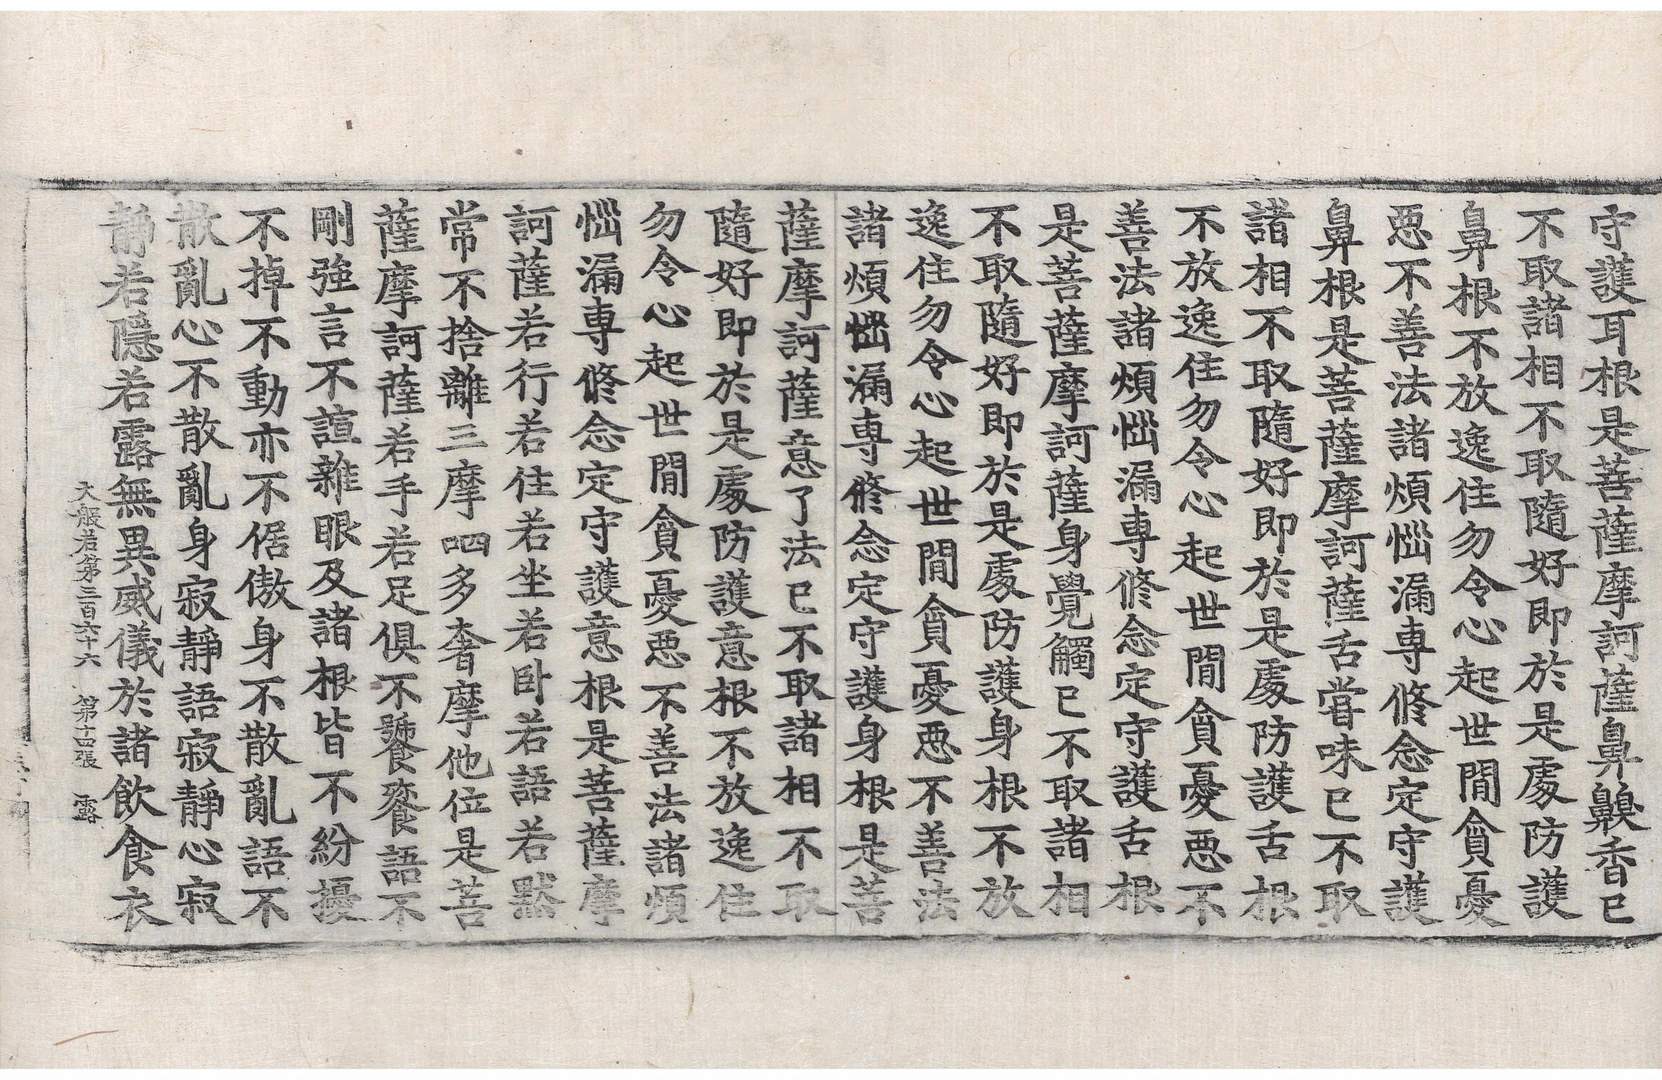 守護耳根是菩薩摩訶薩鼻齅香已
不取諸相不取隨好即於是處防護
鼻根不放逸住勿令心起世間貪憂
惡不善法諸煩惱漏專修念定守護
鼻根是菩薩摩訶薩舌甞味已不取
諸相不取隨好即於是處防護舌根
不放逸住勿令心起世間貪憂惡不
善法諸煩惱漏專修念定守護舌根
是菩薩摩訶薩身覺觸已不取諸相
不取隨好即於是處防護身根不放
逸住勿令心起世間貪憂惡不善法
諸煩惱漏專修念定守護身根是菩
薩摩訶薩意了法已不取諸相不取
隨好即於是處防護意根不放逸住
勿令心起世間貪憂惡不善法諸煩
惱漏專修念定守護意根是菩薩摩
訶薩若行若住若坐若卧若語若默
常不捨離三摩呬多奢摩他位是菩
薩摩訶薩若手若足俱不躁擾語不
剛強言不諠雜眼及諸根皆不紛擾
不掉不動亦不倨傲身不散亂語不
散亂心不散亂身寂靜語寂靜心寂
靜若隱若露無異威儀於諸飲食衣
大般若第三百六十六 第十四張 露